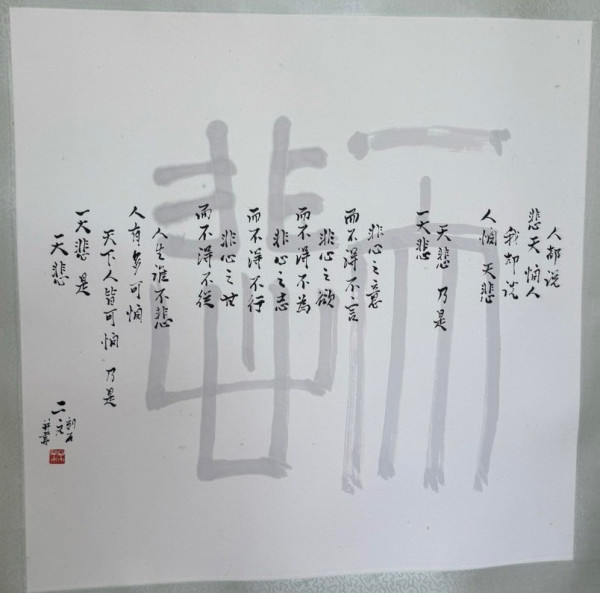 人都说
悲天悯人
我却说
人悯天悲
天悲 乃是
一大悲
非心之意
而不得不言
非心之欲
而不得不为
非心之志
而不得不行
非心之甘
而不得不从
人生谁不悲
人有多可悯
天下人皆可悯 乃是
一大悲 是
一天悲